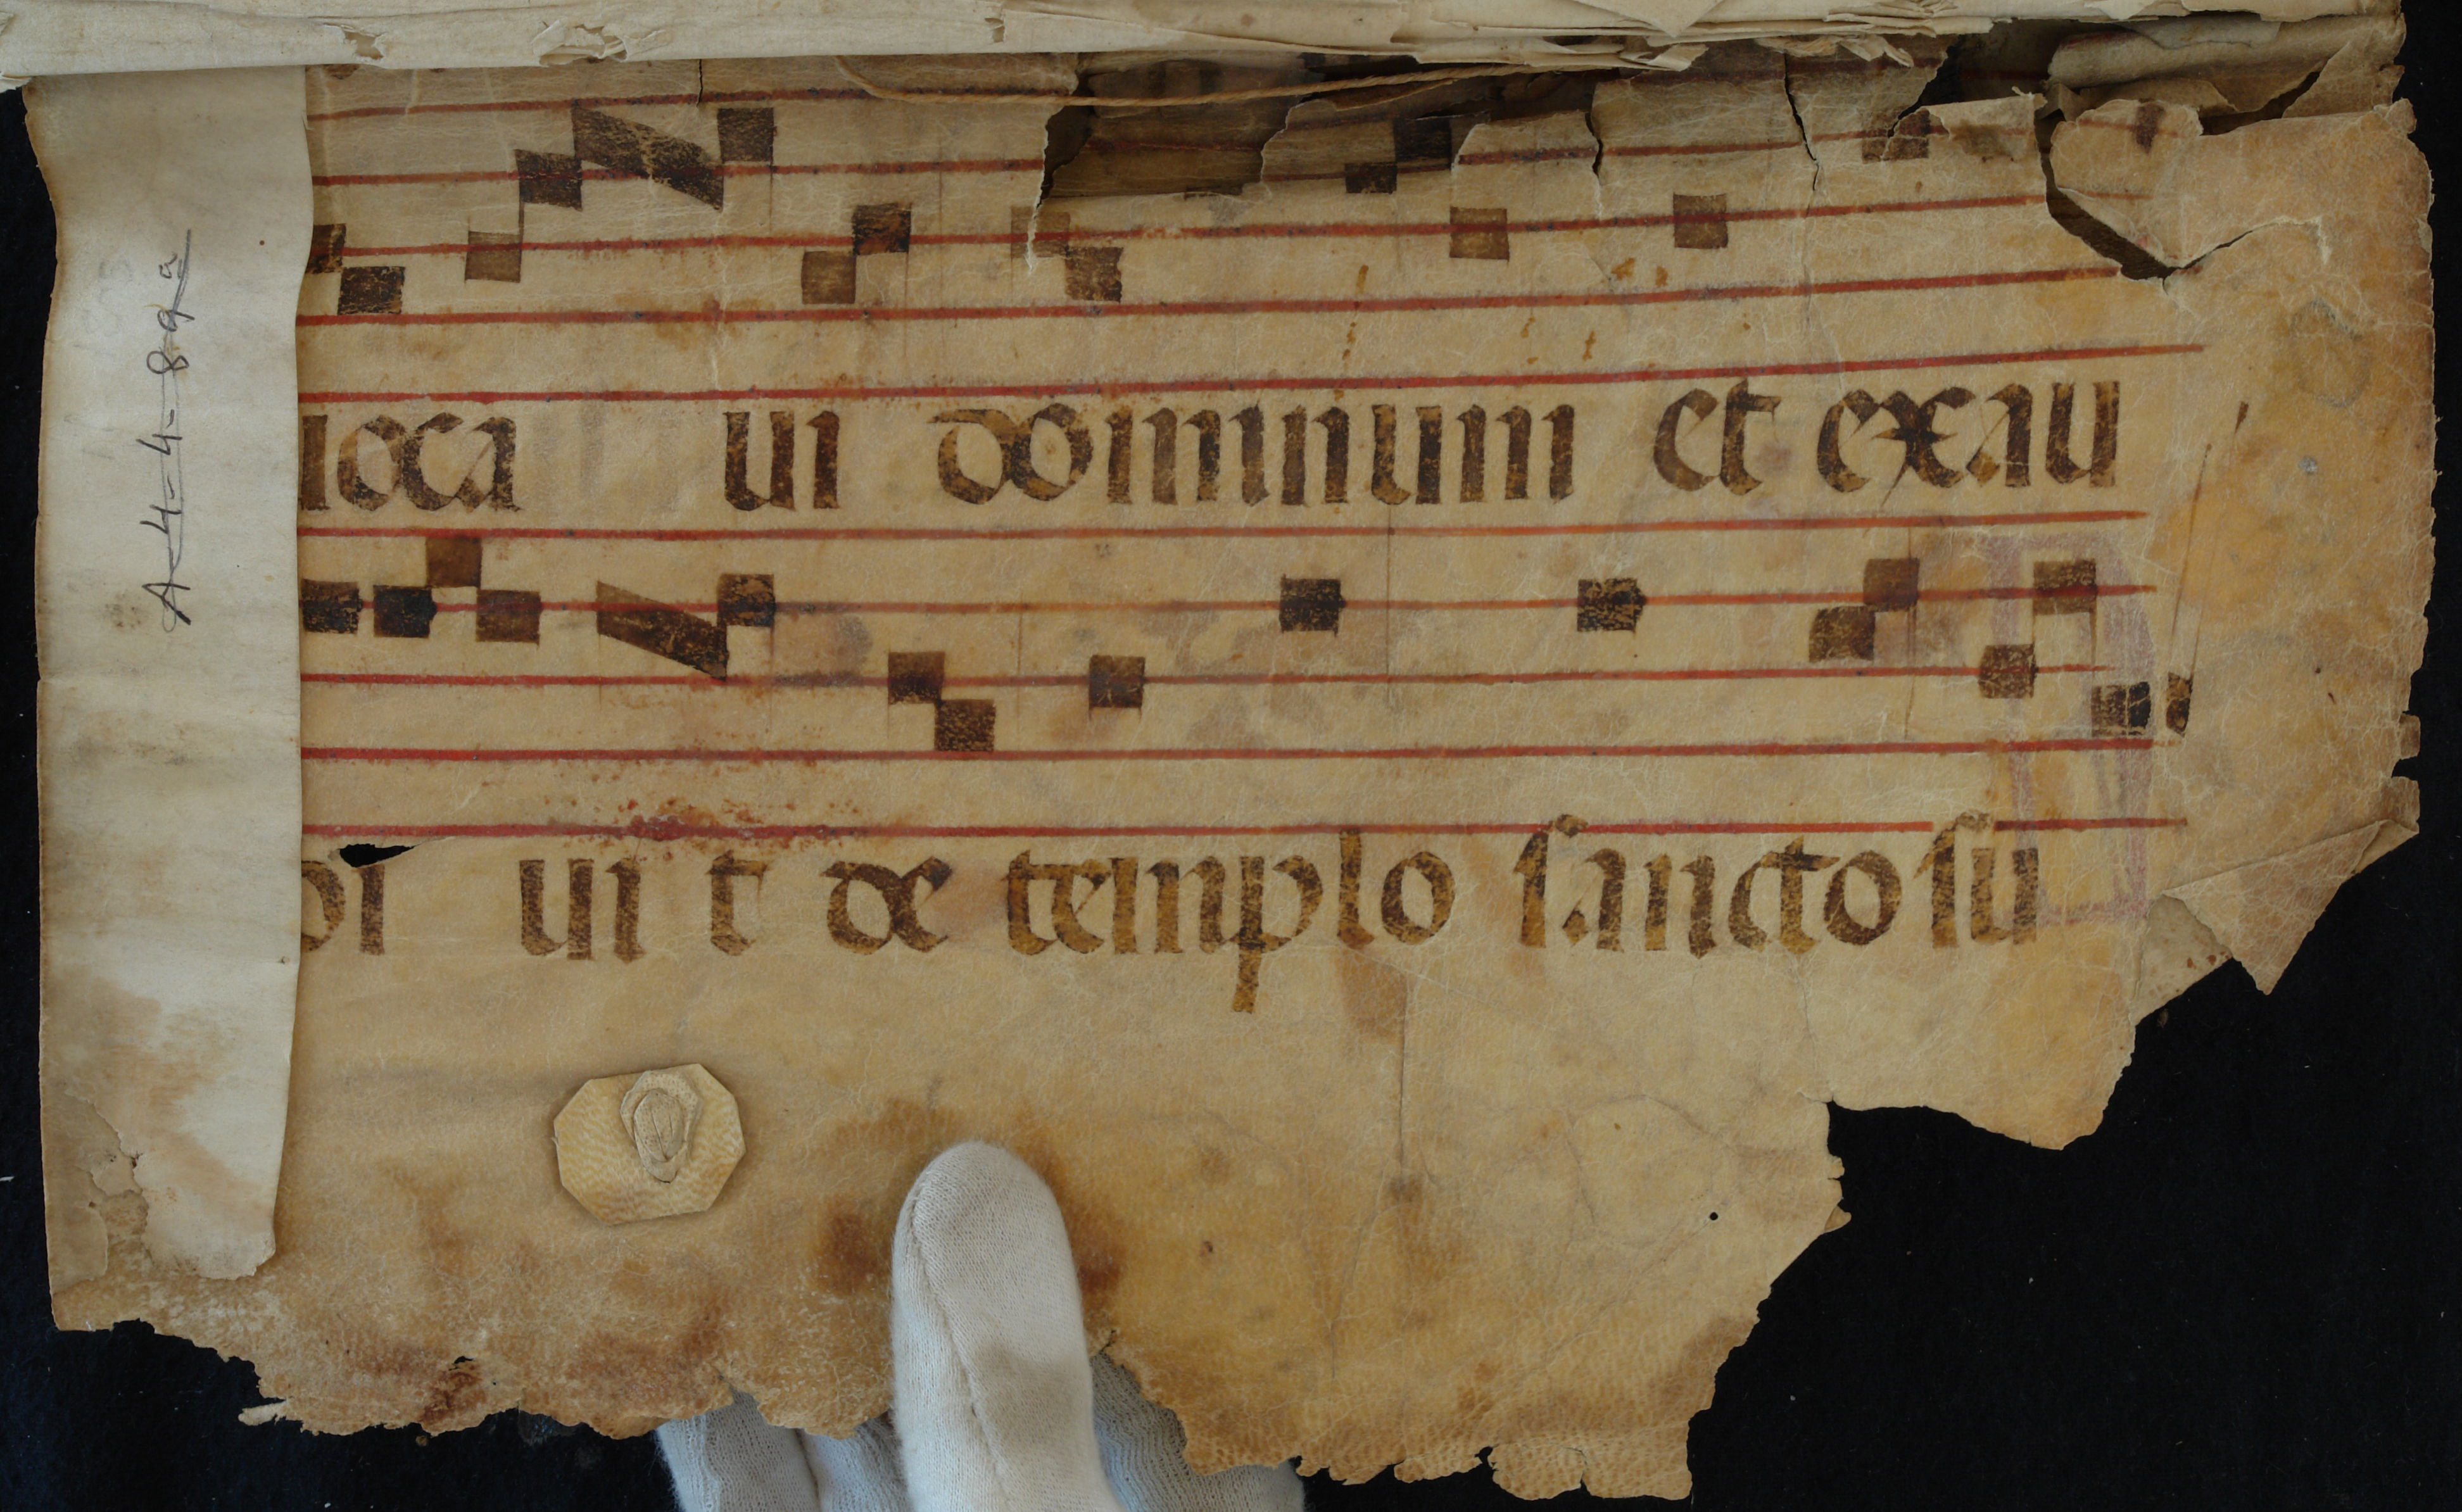 A-4-4-89a
uoca ui dominum et exau
di ui t de templo sancto su